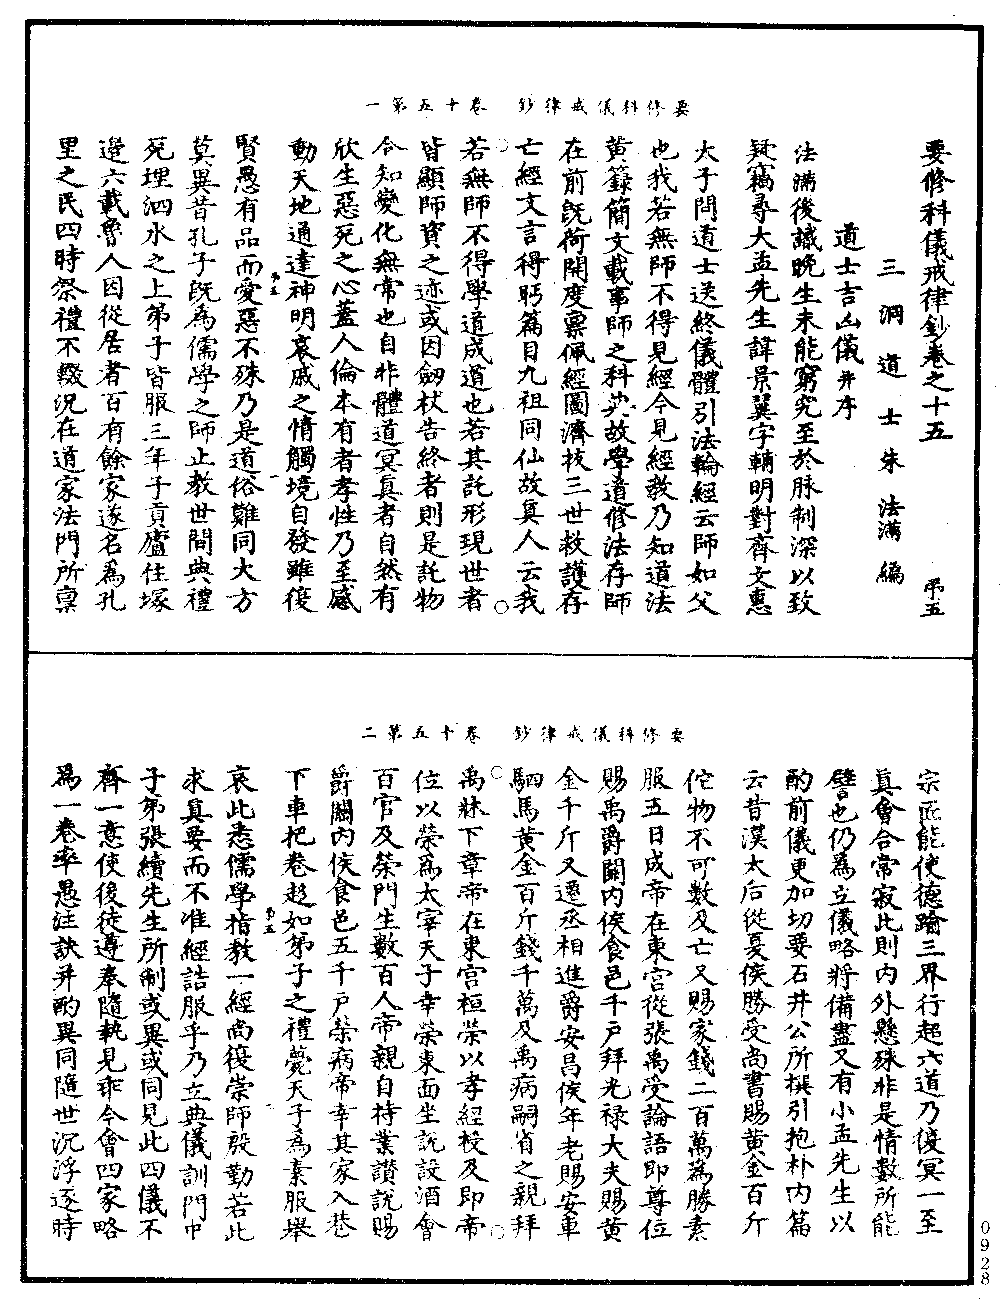 要修科儀戒律鈔 卷十五第一
要修科儀戒律鈔卷之十五 弔五
三洞道士朱法滿編
道士吉凶儀并序
法滿後識晚生未能窮究至於脉制深以致
疑竊尋大孟先生諱景翼字輔明對齊文惠
太子問道士送終儀體引法輪經云師如父
也我若無師不得見經今見經教乃知道法
黃籙簡文載事師之科典故學道修法存師
在前既荷開度稟佩經圖濟拔三世救護存
亡經文言得眄篇目九祖同仙故真人云我
若無師不得學道成道也若其託形現世者
皆顯師資之迹或因劒杖告終者則是託物
令知變化無常也自非體道冥真者自然有
欣生惡死之心蓋人倫本有者孝性乃至感
動天地通達神明哀戚之情觸境自發雖復
賢愚有品而愛惡不殊乃是道俗難同大方
莫異昔孔子既為儒學之師止教世間典禮
死埋泗水之上弟子皆服三年子貢廬住塚
邊六載魯人因從居者百有餘家遂名為孔
里之民四時祭禮不輟況在道家法門所稟
要修科儀戒律鈔 卷十五第二
宗匠能使德踰三界行超六道乃復冥一至
真會合常寂此則內外懸殊非是情數所能
譬也仍為立儀略將備盡又有小孟先生以
酌前儀更加切要石井公所撰引抱朴內篇
云昔漢太后從夏侯勝受尚書賜黃金百斤
佗物不可數及亡又賜家錢二百萬為勝素
服五日成帝在東宮從張禹受論語即尊位
賜禹爵關內侯食邑千戶拜光祿大夫賜黃
金千斤又遷丞相進爵安昌侯年老賜安車
駟馬黃金百斤錢千萬及禹病嗣省之親拜
禹牀下章帝在東宮桓榮以孝經授及即帝
位以榮為太宰天子幸榮東面坐說設酒會
百官及榮門生數百人帝親自持業讚說賜
爵關內侯食邑五千戶榮病帝幸其家入巷
下車把卷趍如弟子之禮薨天子為素服舉
哀此悉儒學指教一經尚復崇師殷勤若此
求真要而不准經詰服乎乃立典儀訓門中
子弟張續先生所制或異或同見此四儀不
齊一意使後徒遵奉隨執見乖今會四家略
為一卷率愚注訣并酌異同隨世沉浮逐時
0928